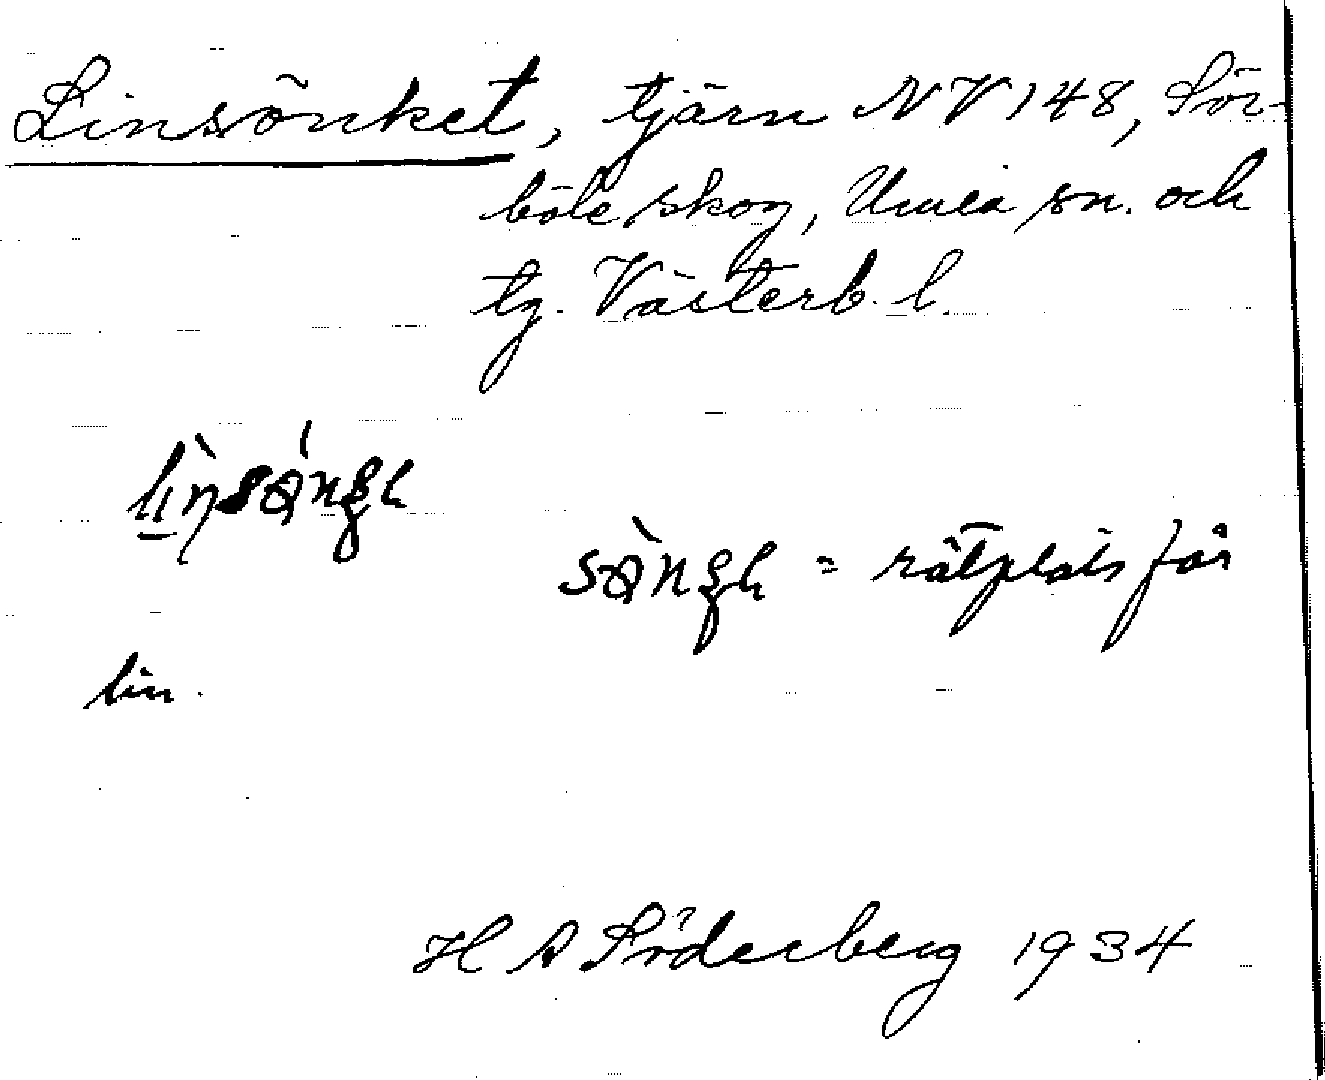 Linsönket, tjärn NV 148, Sör-
böle skog, Umeå sn. och
tg. Västerb. l.
= rötplats för
lin.
H A Söderberg 1934